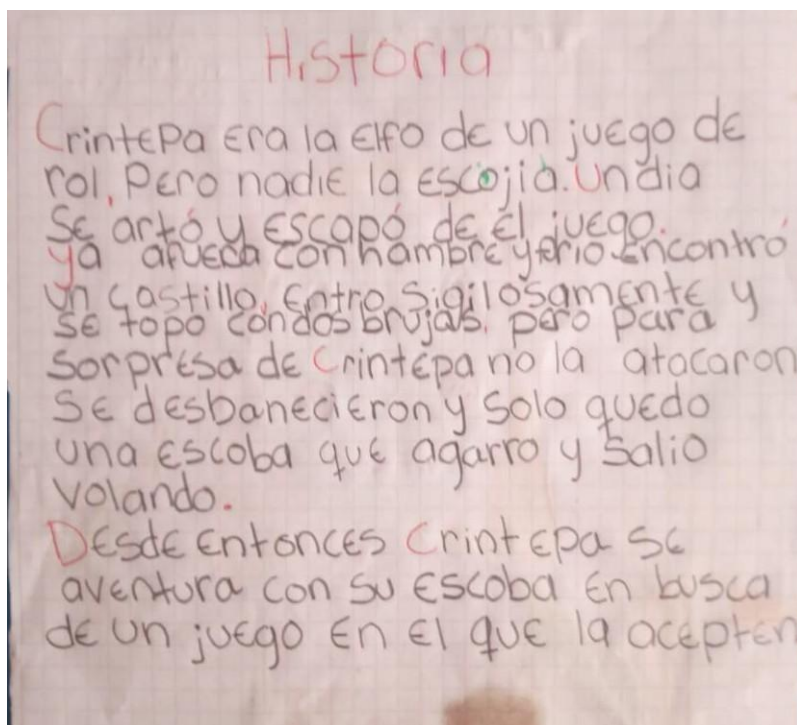 Historia
Crintepa era la elfo de un juego de
rol, Pero nadie la escojia. Un dia
se artó y escapó de el juego.
ya afueda con hambre y frio encontró
un castillo, entro sigilosamente y
se topo con dos brujas, pero para
sorpresa de Crintepa no la atacaron
se desbanecieron y solo quedo
una escoba que agarro y salio
volando.
Desde entonces Crintepa se
aventura con su escoba en busca
de un juego en el que la acepten